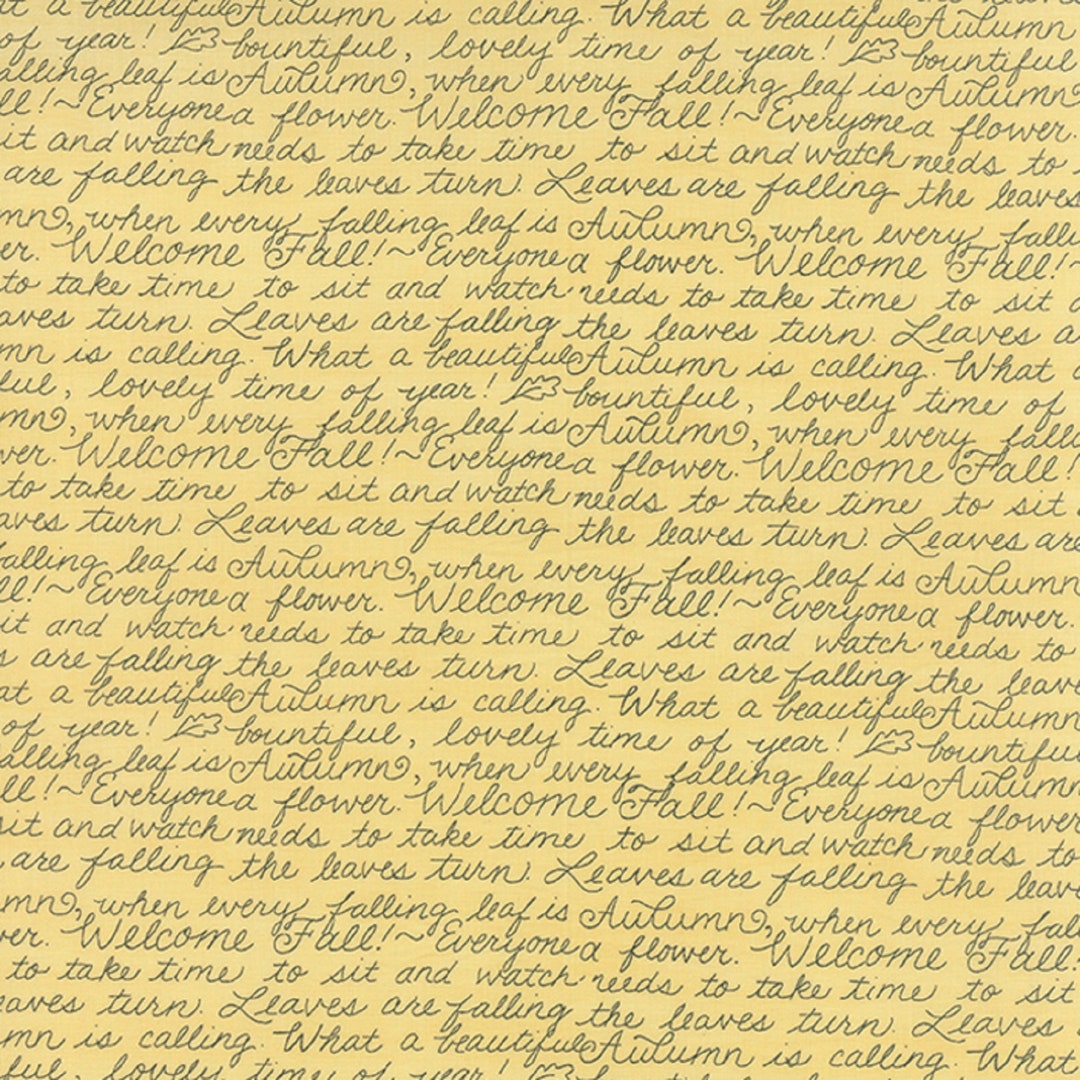 at a beautiful Autumn is calling. What a beautiful Autumn
of year! bountiful, lovely time of year! bountiful
alling leaf is Autumn, when every falling leaf is Autumn
ll! ~ Everyone a flower. Welcome Fall! ~ Everyone a flower.
it and watch needs to take time to sit and watch needs to
are falling the leaves turn. Leaves are falling the leaves
mn, when every falling leaf is Autumn, when every falli
er. Welcome Fall! ~ Everyone a flower. Welcome Fall! ~
to take time to sit and watch needs to take time to sit
aves turn. Leaves are falling the leaves turn. Leaves a
mn is calling. What a beautiful Autumn is calling. What a
ful, lovely time of year! bountiful, lovely time of
mn, when every falling leaf is Autumn, when every falli
ver. Welcome Fall! ~ Everyone a flower. Welcome Fall!
to take time to sit and watch needs to take time to sit
aves turn. Leaves are falling the leaves turn. Leaves are
falling leaf is Autumn, when every falling leaf is Autumn
ll! ~ Everyone a flower. Welcome Fall! ~ Everyone a flower.
it and watch needs to take time to sit and watch needs to
s are falling the leaves turn. Leaves are falling the leave
at a beautiful Autumn is calling. What a beautiful Autumn
of year! bountiful, lovely time of year! bountiful
alling leaf is Autumn, when every falling leaf is Autumn
ll! ~ Everyone a flower. Welcome Fall! ~ Everyone a flower
sit and watch needs to take time to sit and watch needs to
are falling the leaves turn. Leaves are falling the leave
mn, when every falling leaf is Autumn, when every fall
ver. Welcome Fall! ~ Everyone a flower. Welcome Fall!
to take time to sit and watch needs to take time to sit
eaves turn. Leaves are falling the leaves turn. Leaves
mn is calling. What a beautiful Autumn is calling. What
ful, lovely time of year!